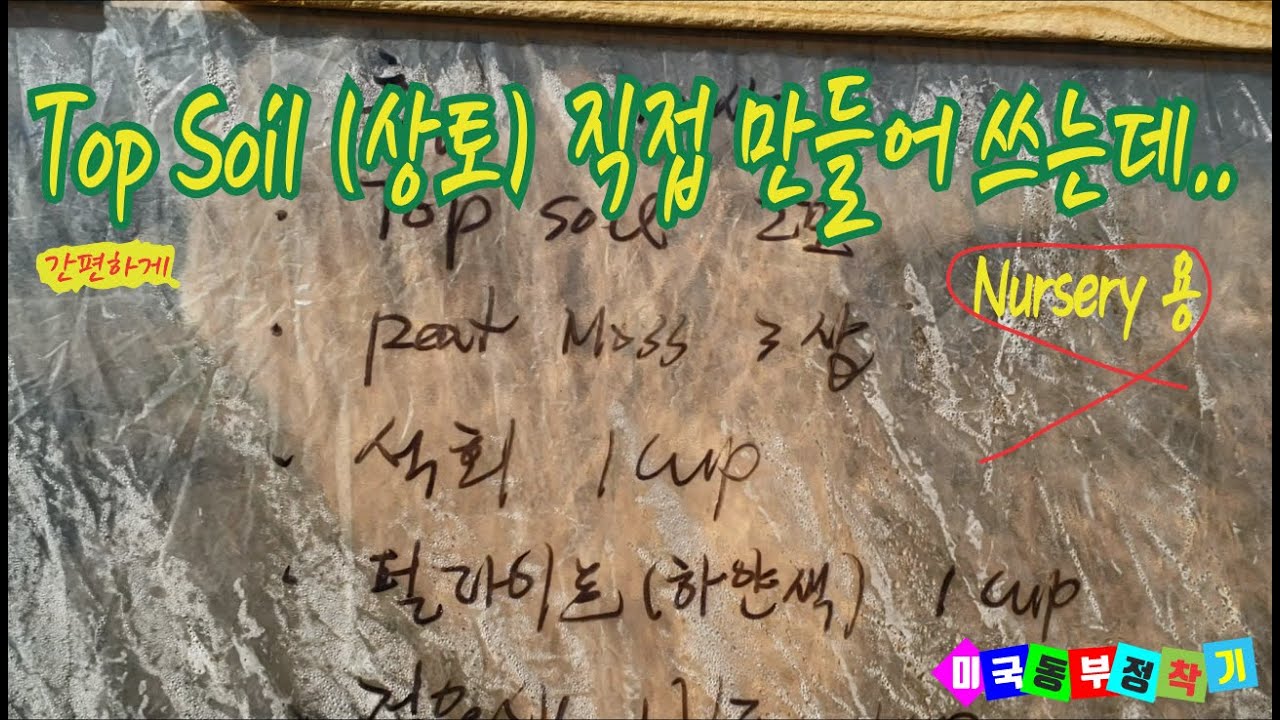 Top Soil (상토) 직접 만들어 쓰는데..
간편하게
Nursery 용
· Top soil 2포
· peat Moss 3삽
· 석회 1 cup
· 펄라이트 (하얀색) 1 cup
미국동부정착기